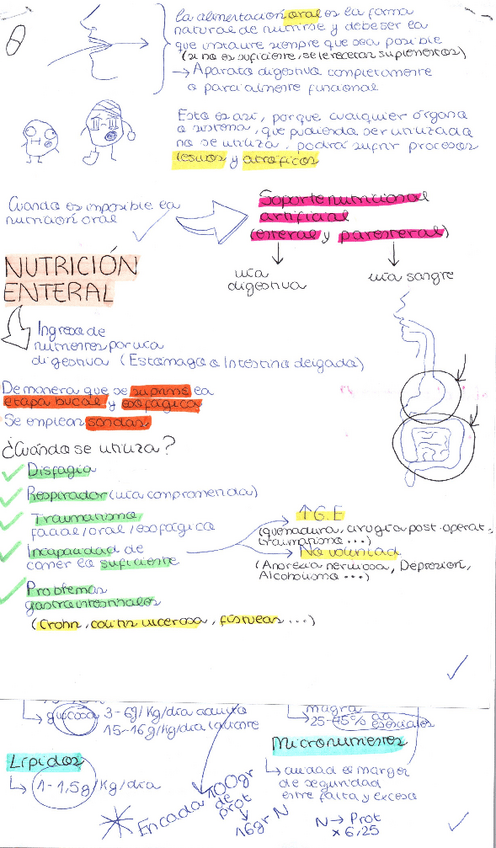 la alimentación oral es la forma
natural de nutrirse y debe ser la
que instaure siempre que sea posible
(si no es suficiente, se le recetan suplementos)
→ Aparato digestivo completamente
o parcialmente funcional
Esto es así, porque cualquier órgano
o sistema, que pudiendo ser utilizado
no se utiliza, podrá sufrir procesos
lesivos y atróficos
Cuando es imposible la
nutrición oral
Soporte nutricional
artificial
(enteral y parenteral)
vía
digestiva
vía sangre
NUTRICIÓN
ENTERAL
Ingreso de
nutrientes por vía
digestiva (Estómago o Intestino delgado)
De manera que se suprime la
etapa bucal y esofágica
Se emplean sondas.
¿Cuándo se utiliza?
Disfagia
Respirador (vía comprometida)
Traumatismo
facial/oral/esofágica
Incapacidad de
comer lo suficiente
↑G.E
(quemadura, cirugía post-operat.,
traumatismo ...)
No voluntad
(Anorexia nerviosa, Depresión,
Alcoholismo ...)
Problemas
gastrointestinales
(Crohn, colitis ulcerosa, fístulas ...)
↳ glucosa 3-6g/Kg/día adulto
15-16g/Kg/día
Lípidos
↳ 1-1,5g/Kg/día
magra
25-45% aa
esenciales
Micronutrientes
↳ cuidad el margen
de seguridad
entre falta y exceso
* En cada 100gr
de prot
↳ 16gr N
N → Prot
x 6,25